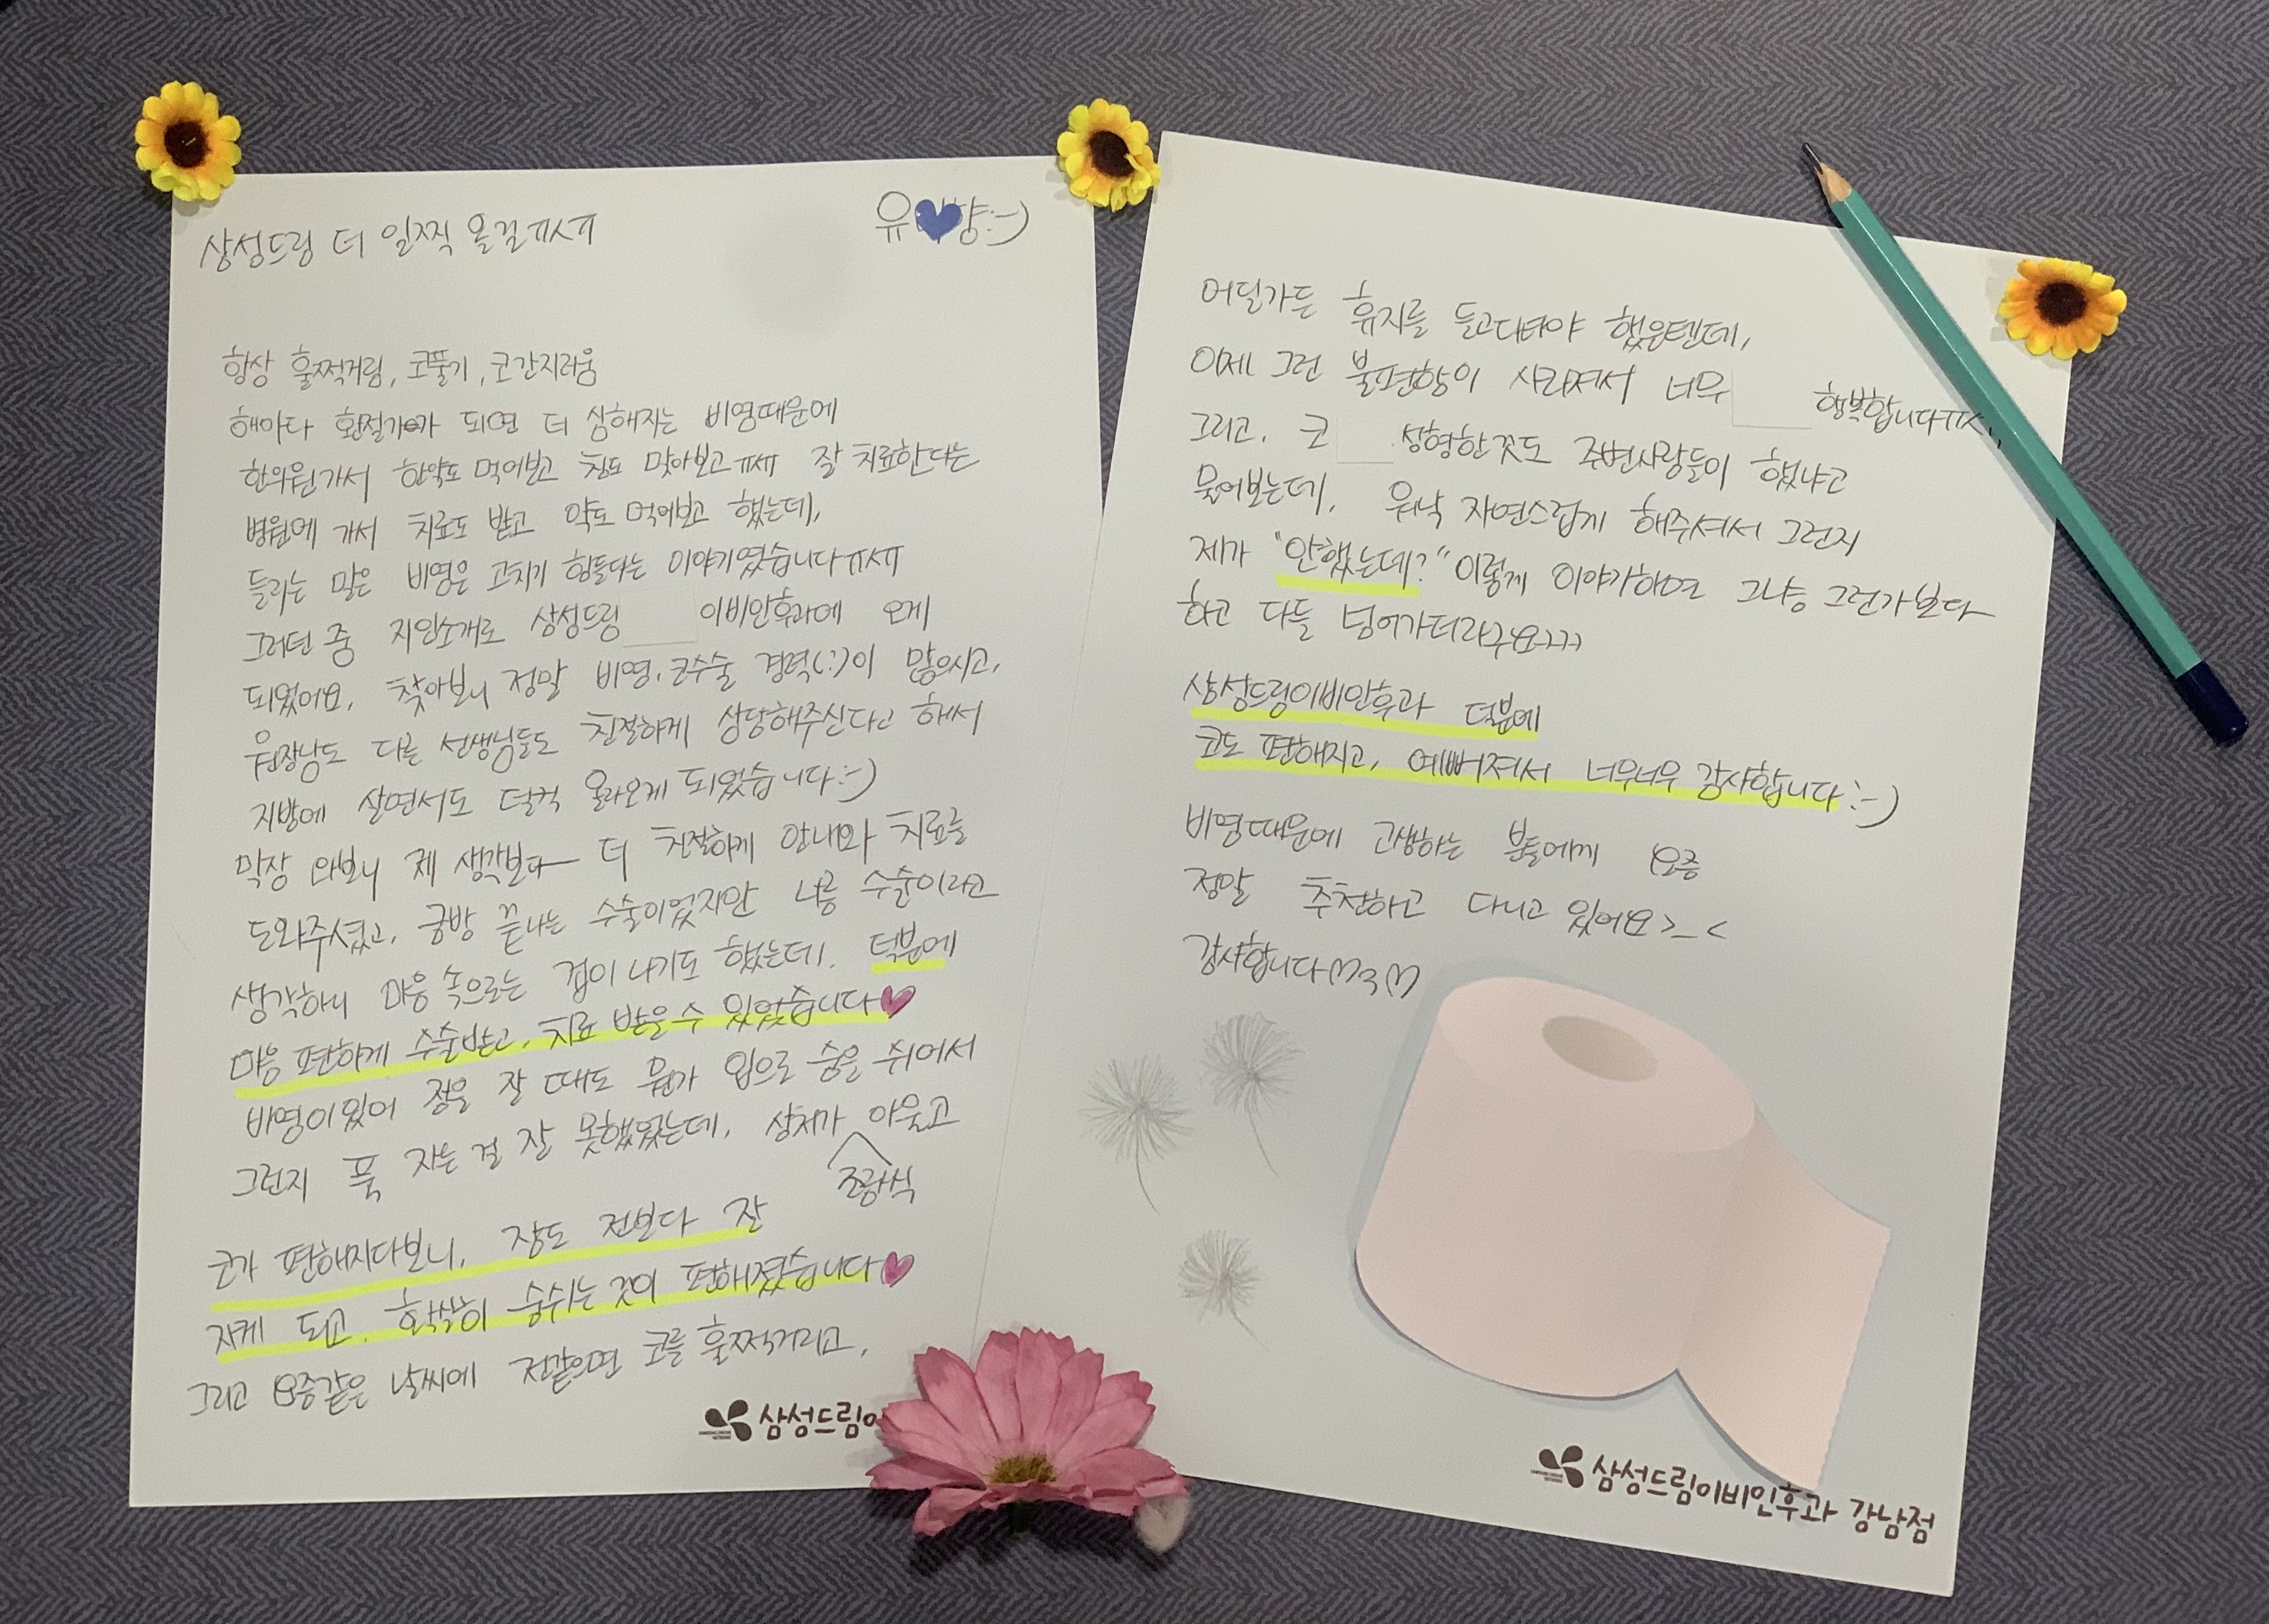 삼성드림 더 일찍 올걸ㅠㅅㅠ
유 향:-)
항상 훌쩍거림, 코풀기, 코간지러움
해마다 환절기가 되면 더 심해지는 비염때문에
한의원가서 한약도 먹어보고 침도 맞아보고ㅠㅠ 잘 치료한다는
병원에 가서 치료도 받고 약도 먹어보고 했는데,
들리는 말은 비염은 고치기 힘들다는 이야기였습니다ㅠㅅㅠ
그러던 중 지인소개로 삼성드림 이비인후과에 오게
되었어요. 찾아보니 정말 비염, 코수술 경력(:)이 많으시고,
원장님도 다른 선생님들도 친절하게 상담해주신다고 해서
지방에 살면서도 덜컥 올라오게 되었습니다:-)
막상 와보니 제 생각보다 더 친절하게 안내와 치료를
도와주셨고, 금방 끝나는 수술이었지만 나름 수술이라고
생각하니 마음 속으로는 겁이 나기도 했는데, 덕분에
마음 편하게 수술받고, 치료 받을 수 있었습니다♥
비염이있어 잠을 잘 때도 뭔가 입으로 숨을 쉬어서
그런지 푹 자는 걸 잘 못했었는데, 상처가 아물고
조금씩
코가 편해지다보니, 잠도 전보다 잘
자게 되고, 확실히 숨쉬는 것이 편해졌습니다♥
그리고 요즘같은 날씨에 전같으면 코를 훌쩍거리고,
삼성드림이
어딜가든 휴지를 들고다녀야 했을텐데,
이제 그런 불편함이 사라져서 너무 행복합니다ㅠㅅ
그리고, 코 성형한것도 주변사람들이 했냐고
물어보는데, 워낙 자연스럽게 해주셔서 그런지
제가 "안했는데?" 이렇게 이야기하면 그냥 그런가보다
하고 다들 넘어가더라구요ㅋㅋㅋ
삼성드림이비인후과 덕분에
코도 편해지고, 예뻐져서 너무너무 감사합니다:-)
비염때문에 고생하는 분들에게 요즘
정말 추천하고 다니고 있어요>_<
감사합니다
삼성드림이비인후과 강남점